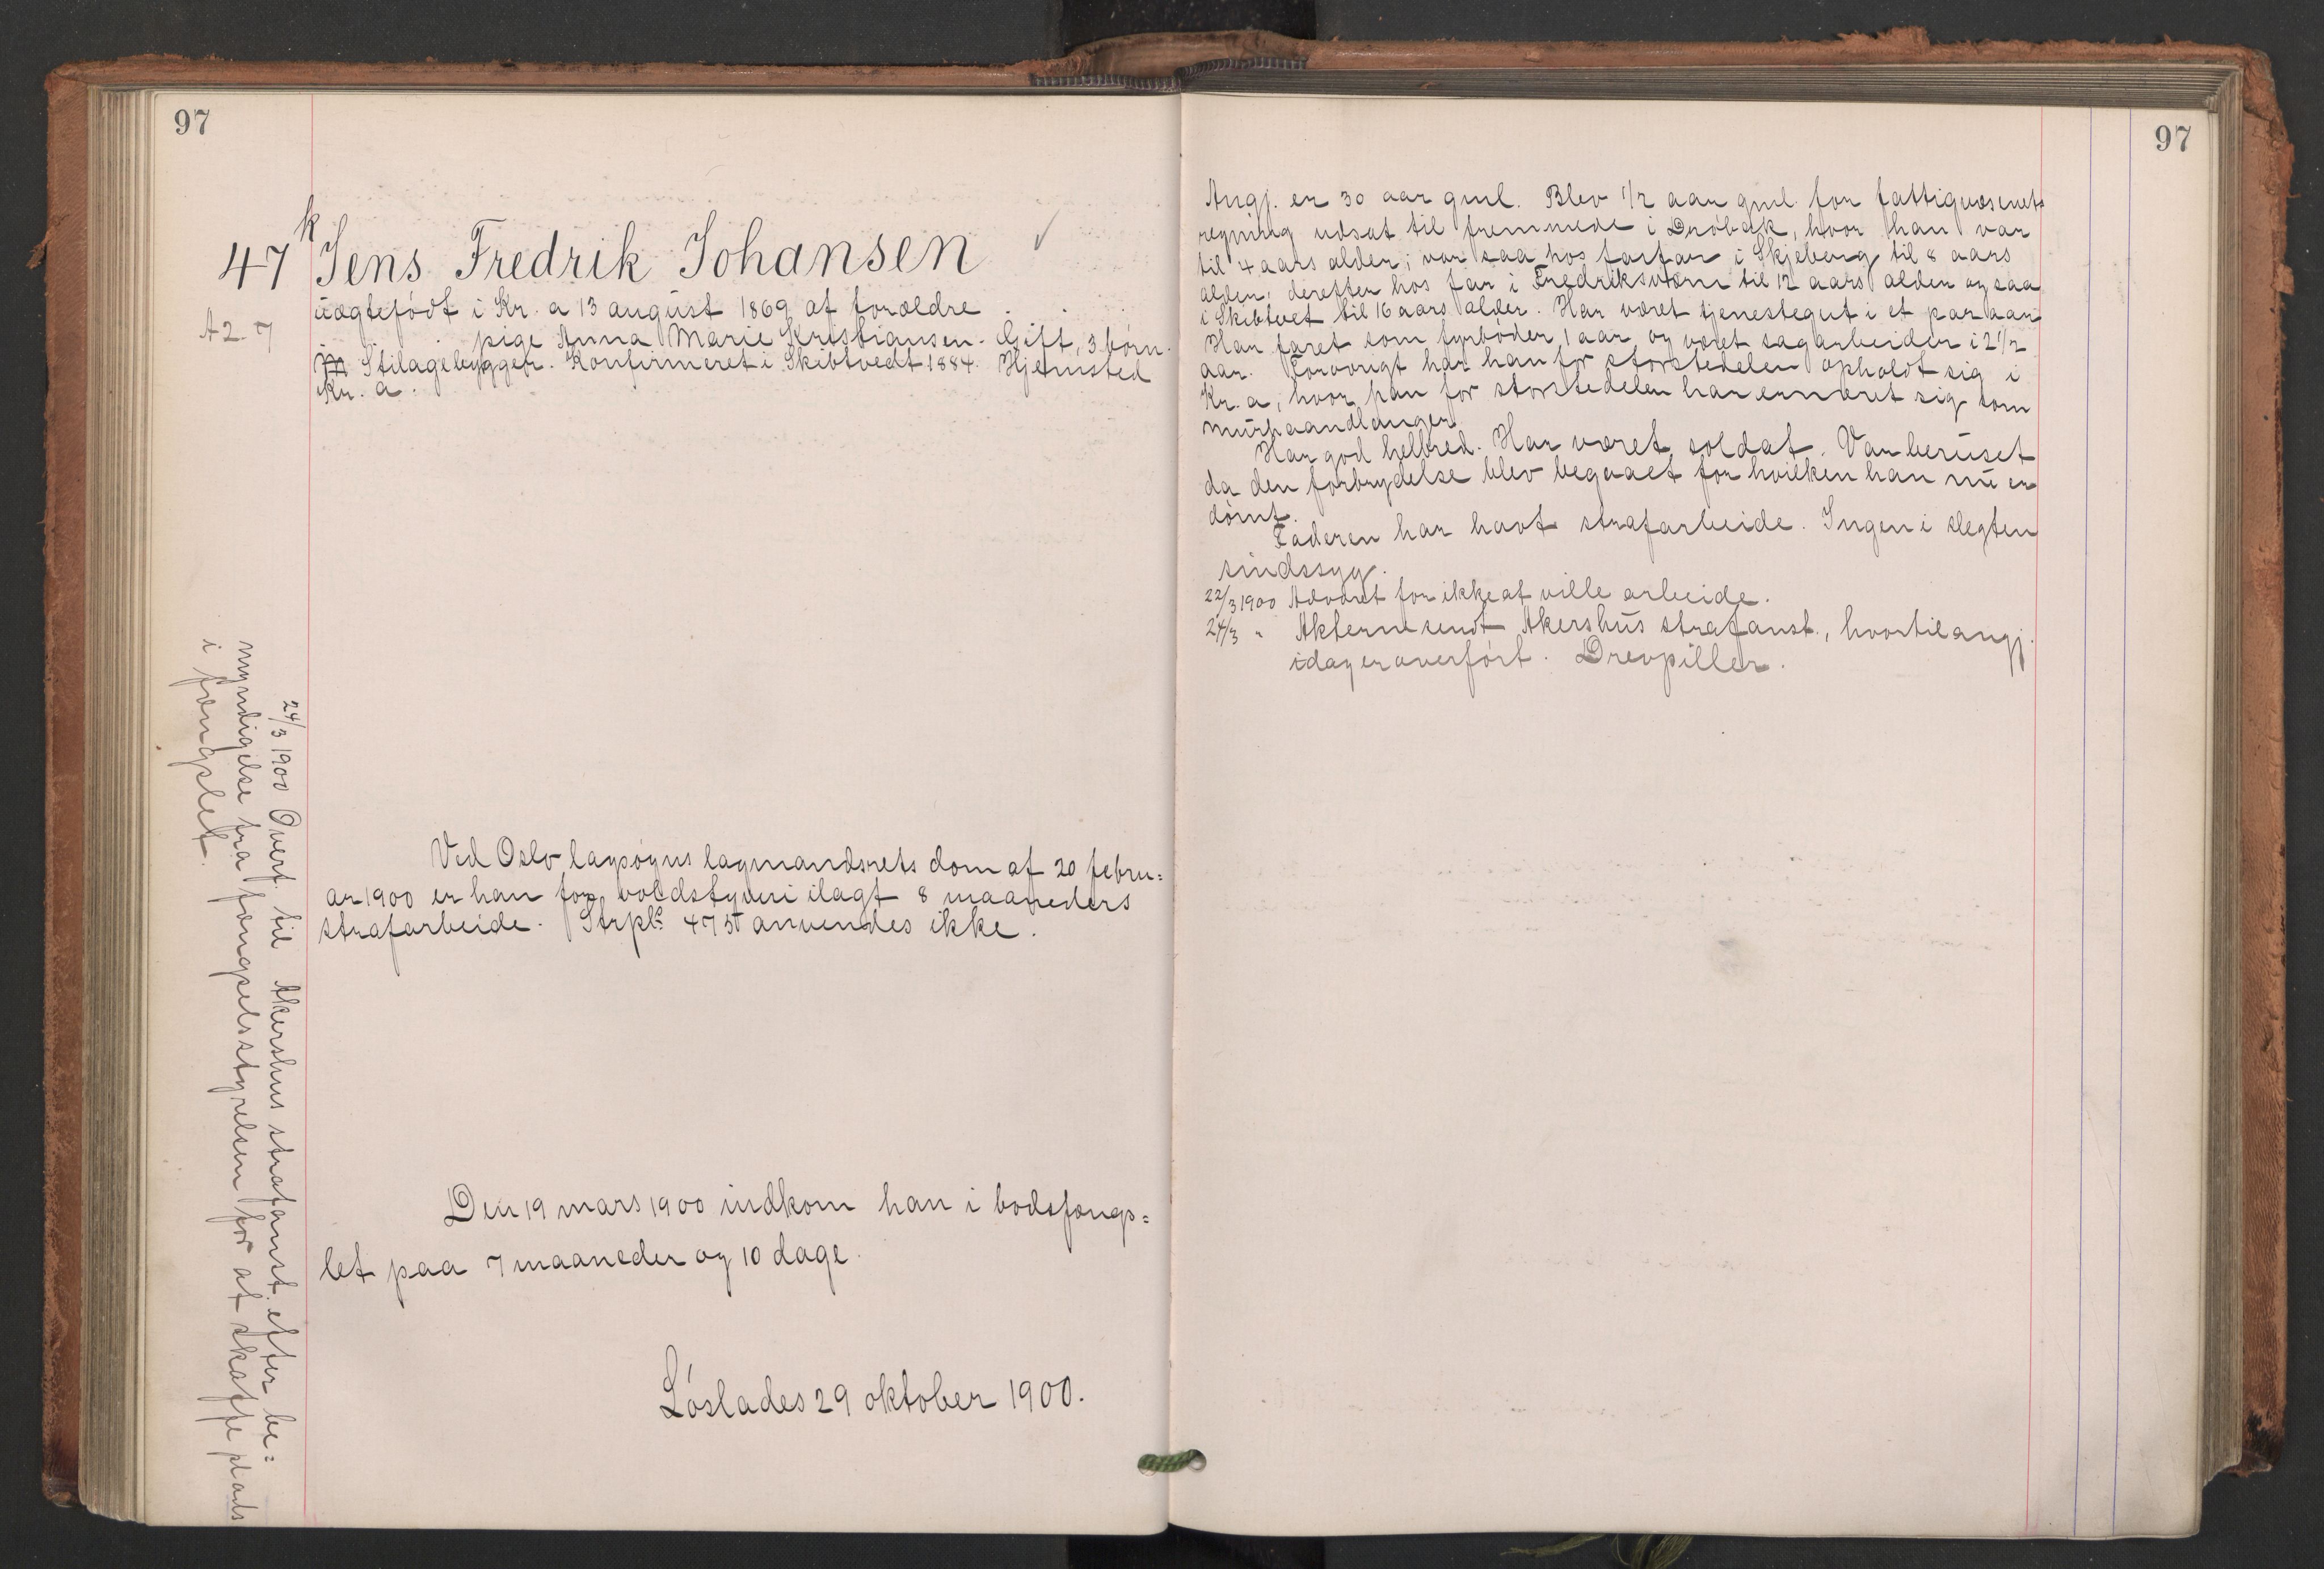 97
47 k Jens Fredrik Johansen ✓
uægtefødt i Kr.a 13 august 1869 af forældre
A2-7
pige Anna Marie Kristiansen. Gift, 3 børn.
M Stilagebygger. Konfirmeret i Skibtvedt 1884. Hjemsted
Kr.a.
Ved Oslo lagsogns lagmandsrets dom af 20 febru=
ar 1900 er han for voldstyveri ilagt 8 maaneders
strafarbeide. Strpl. 475 anvendes ikke.
Den 19 mars 1900 indkom han i bodsfængs=
let paa 7 maaneder og 10 dage.
Løslades 29 oktober 1900.
24/3 1900 Overf. til Akershus strafanst. efter be=
myndigelse fra fængselsstyrelsen for at skaffe plads
i fængslet.
97
Angj. er 30 aar gml. Blev 1/2 aar gml. for fattigvæsenets
regning udsat til fremmede i Drøbak, hvor han var
til 4 aars alder; var saa hos farfar i Skjeberg til 8 aars
alder; derefter hos far i Fredriksværn til 12 aars alder og saa
i Skibtvet til 16 aars alder. Har været tjenestegut i et par aar
Har faret som fyrbøder 1 aar og været sagarbeider i 2 1/2
aar. Forøvrigt har han for størstedelen opholdt sig i
Kr.a, hvor han for størstedelen har ernæret sig som
murhaandlanger.
Har god helbred. Har været soldat. Var beruset
da den forbrydelse blev begaaet for hvilken han nu er
dømt.
Faderen har havt strafarbeide. Ingen i slegten
sindssyg.
22/3 1900 Advaret for ikke at ville arbeide.
24/3 " Akterne sendt Akershus strafanst., hvortil angj.
idag er overført. Drevpiller.